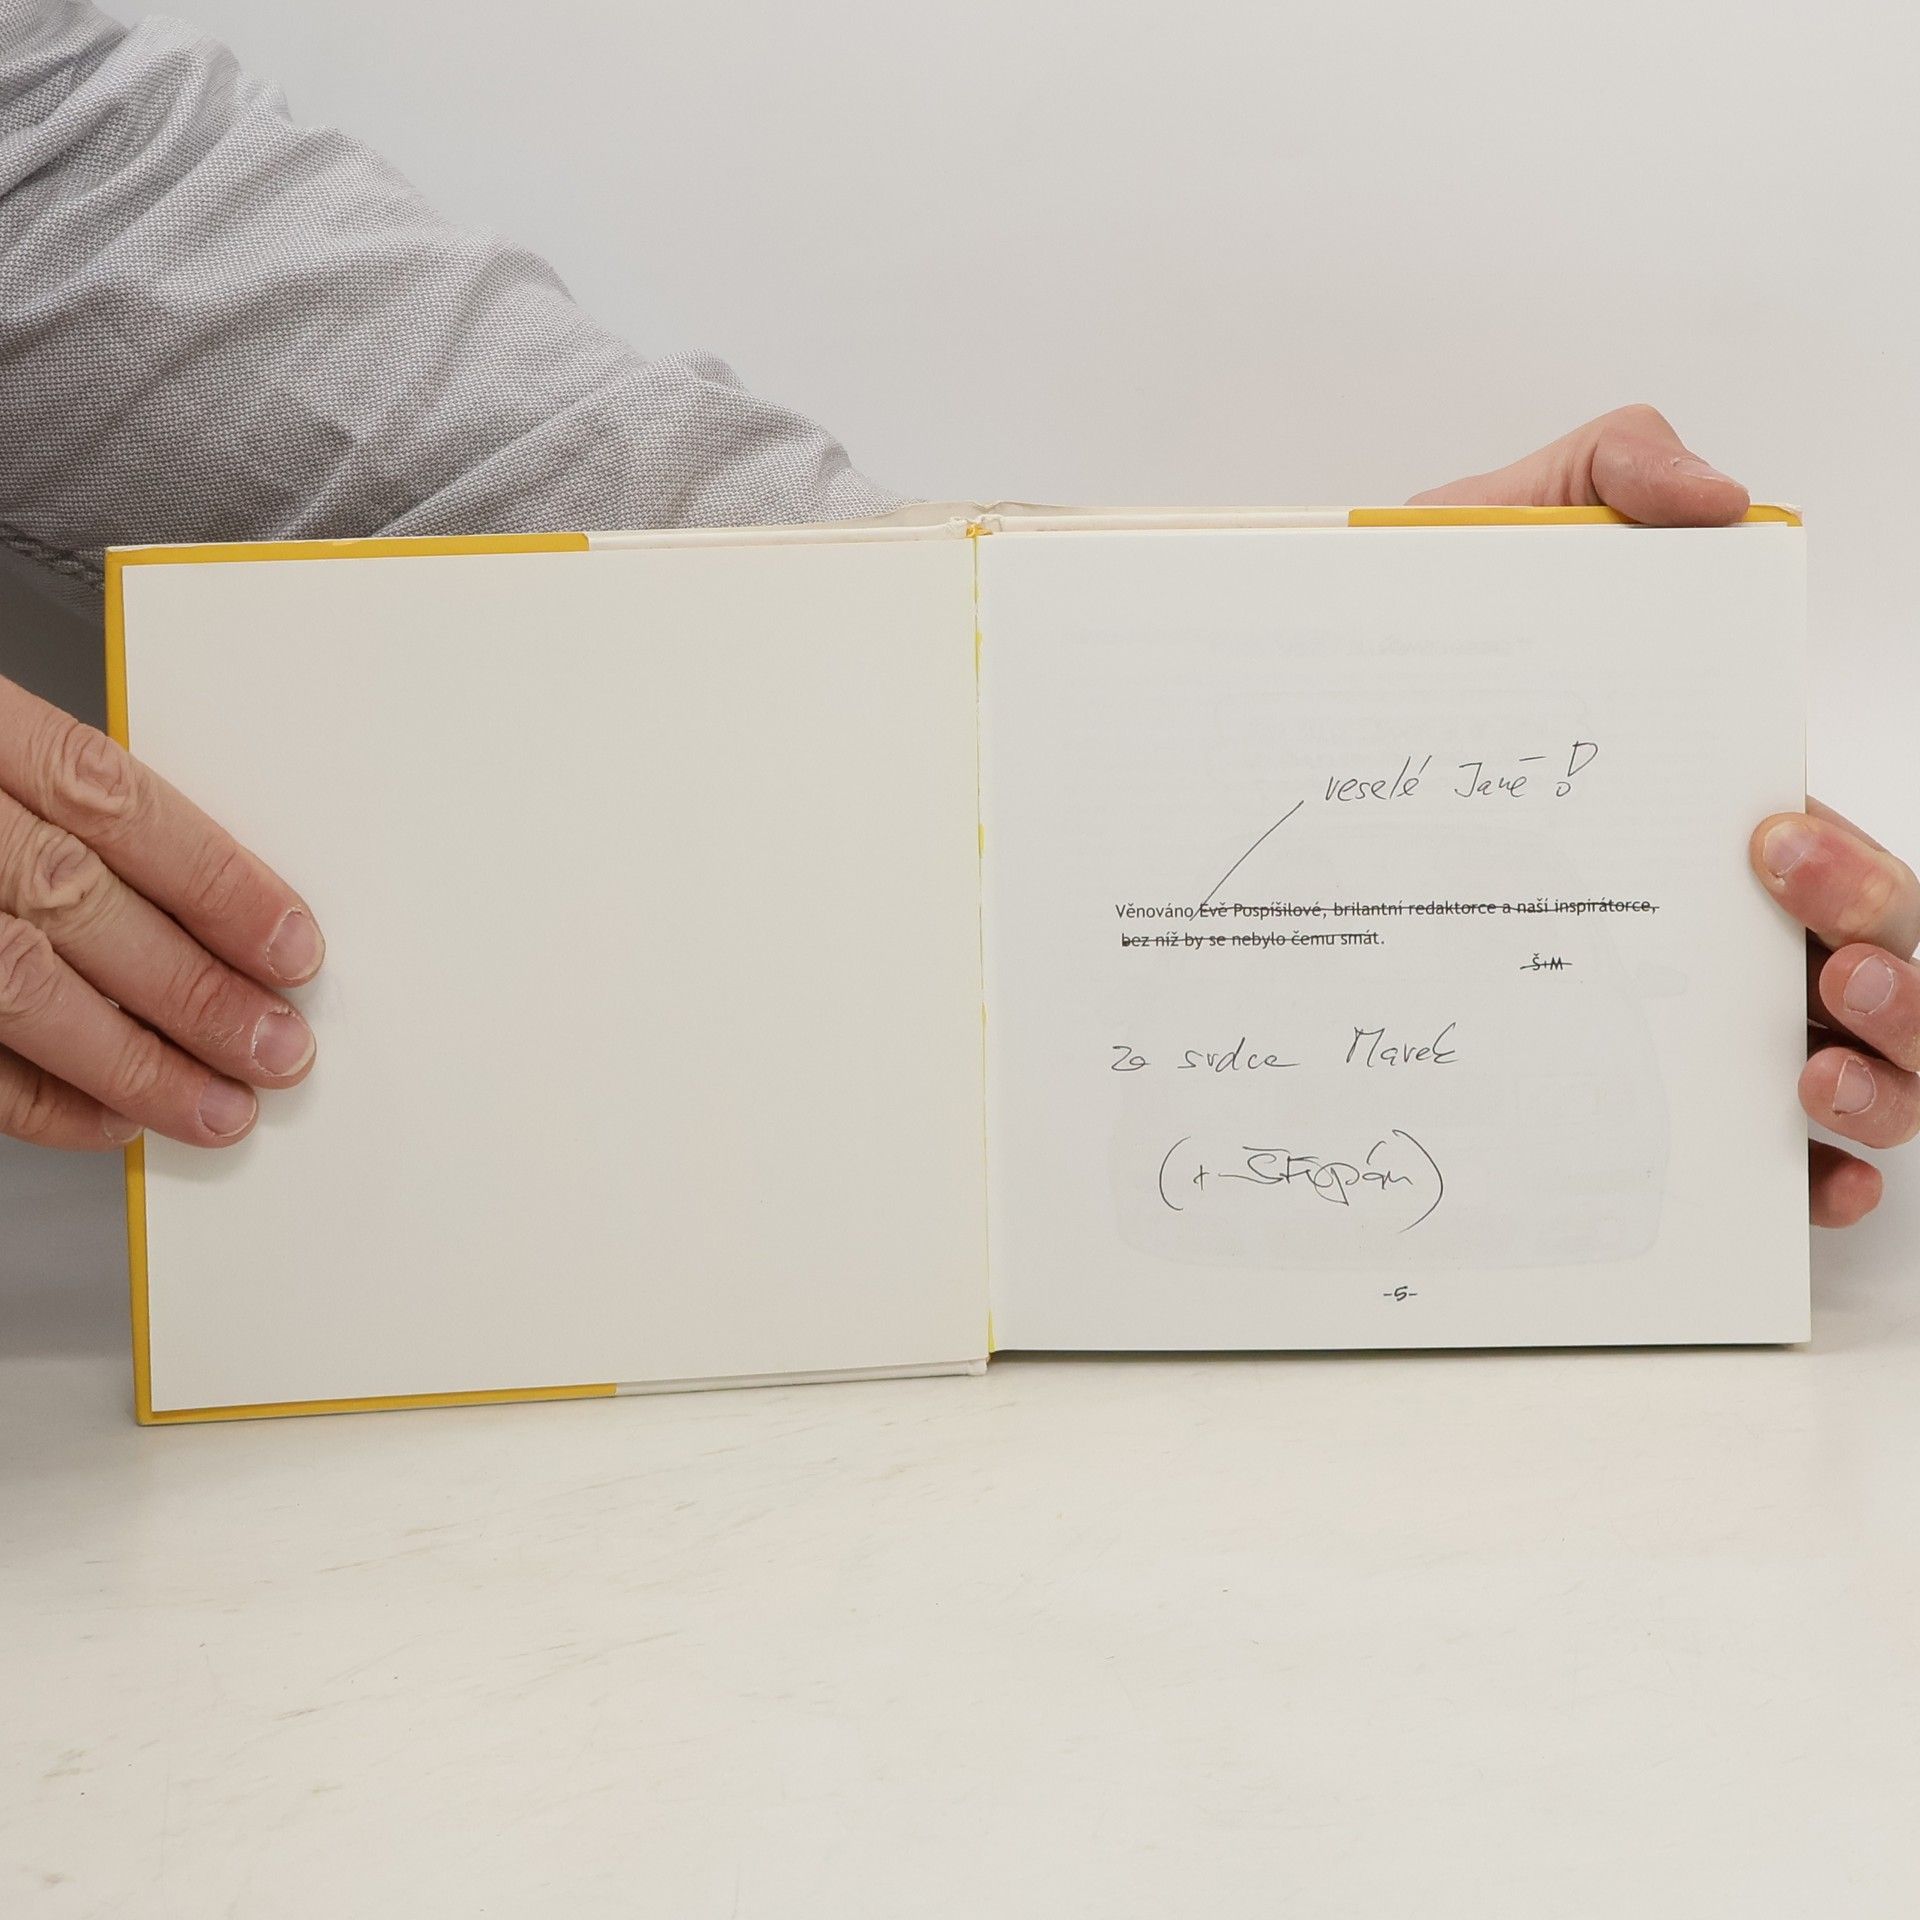 veselé Janě !
Věnováno Evě Pospíšilové, brilantní redaktorce a naší inspirátorce,
bez níž by se nebylo čemu smát.
Š+M
ze srdce Marek
(+ Štěpán)
-5-